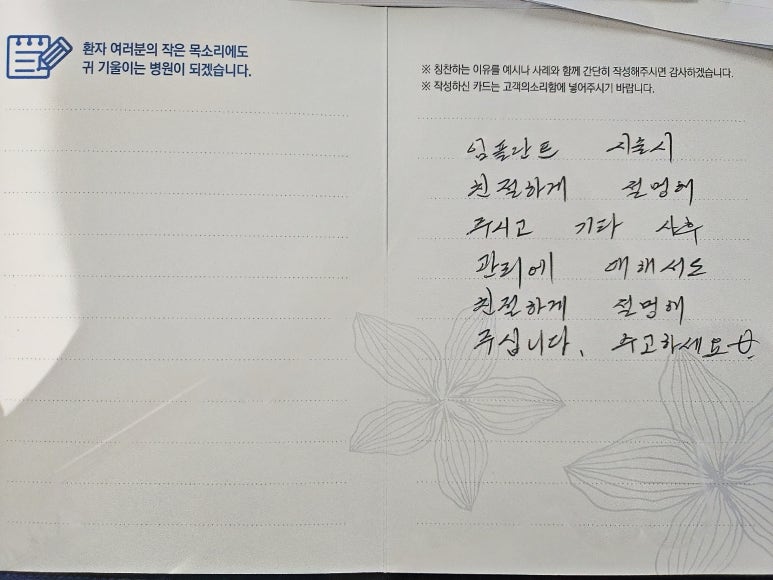 환자 여러분의 작은 목소리에도
귀 기울이는 병원이 되겠습니다.
※ 칭찬하는 이유를 예시나 사례와 함께 간단히 작성해주시면 감사하겠습니다.
※ 작성하신 카드는 고객의소리함에 넣어주시기 바랍니다.
임플란트 시술시
친절하게 설명해
주시고 기타 사후
관리에 대해서도
친절하게 설명해
주십니다. 수고하세요